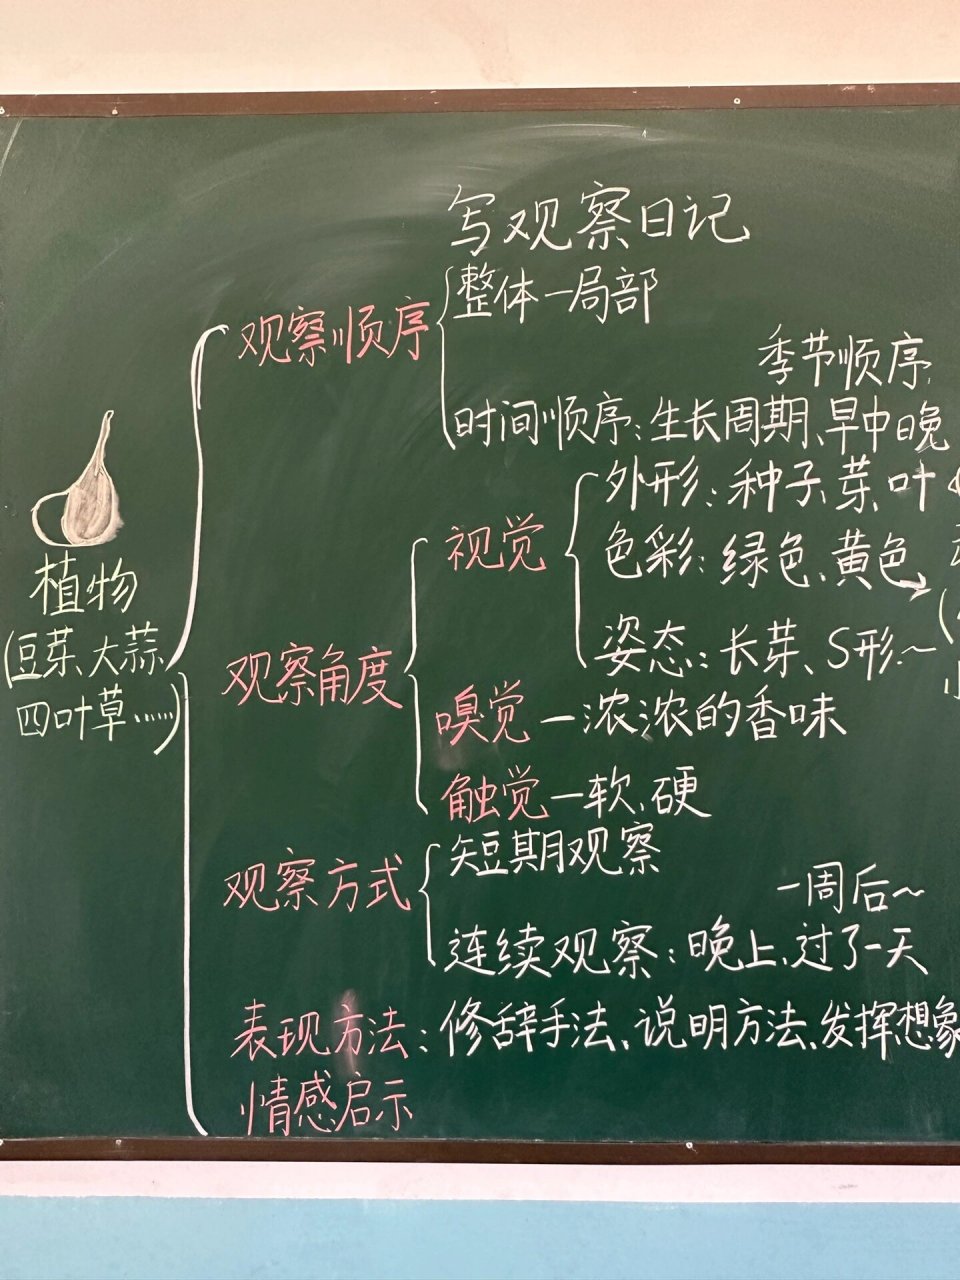 写观察日记
观察顺序
整体—局部
季节顺序
时间顺序：生长周期、早中晚
植物
(豆芽、大蒜、
四叶草……)
观察角度
视觉
外形：种子、芽、叶
色彩：绿色、黄色
姿态：长芽、S形~
嗅觉—浓浓的香味
触觉—软、硬
观察方式
短期观察
一周后~
连续观察：晚上、过了一天
表现方法：修辞手法、说明方法、发挥想象
情感启示